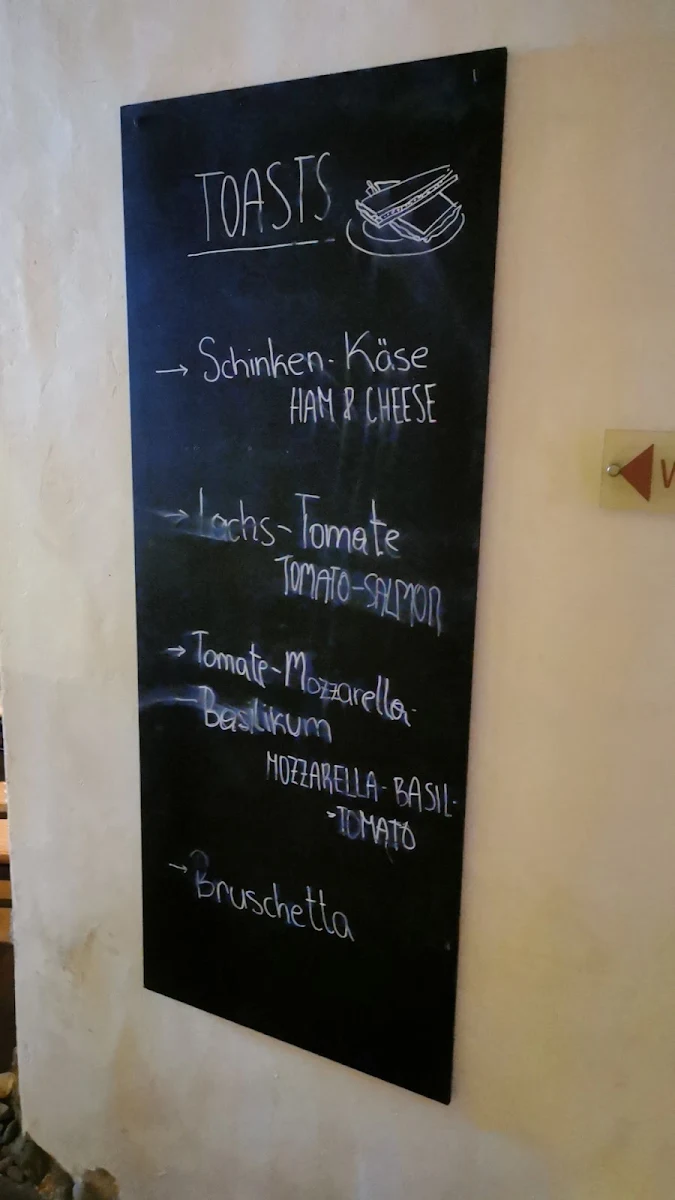 TOASTS
→ Schinken-Käse
HAM & CHEESE
→ Lachs-Tomate
TOMATO-SALMON
→ Tomate-Mozzarella-
Basilikum
MOZZARELLA-BASIL-
-TOMATO
→ Bruschetta